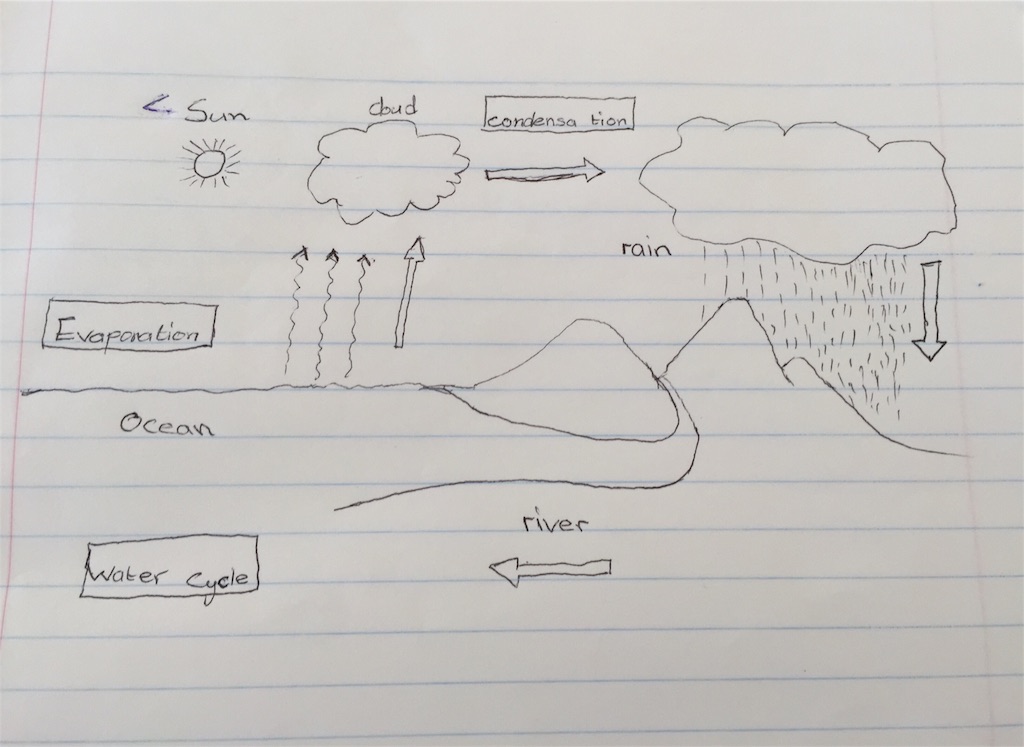 Sun
cloud
condensation
rain
Evaporation
Ocean
river
Water Cycle